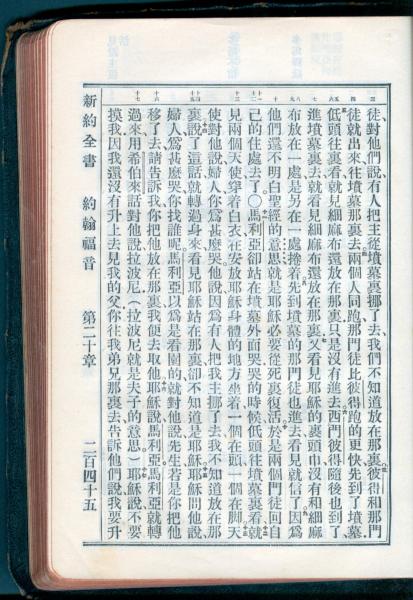 三 四 五 六 七 八 九 十 十一 十二 十三 十四 十五 十六 十七
徒對他們說有人把主從墳墓裏挪了去我們不知道放在那裏彼得和那門
徒就出來往墳墓那裏去兩個人同跑那門徒比彼得跑的更快先到了墳墓
低頭往裏看就見細麻布還放在那裏只是沒有進去西門彼得隨後也到了
進墳墓裏去就看見細麻布還放在那裏又看見耶穌的裹頭巾沒有和細麻
布放在一處是另在一處捲着先到墳墓的那門徒也進去看見就信了因爲
他們還不明白聖經的意思就是耶穌必要從死裏復活於是兩個門徒回自
己的住處去了〇馬利亞卻站在墳墓外面哭哭的時候低頭往墳墓裏看就
見兩個天使穿着白衣在安放耶穌身體的地方坐着一個在頭一個在脚天
使對他說婦人你爲甚麼哭他說因爲有人把我主挪了去我不知道放在那
裏說了這話就轉過身來看見耶穌站在那裏卻不知道是耶穌耶穌問他說
婦人爲甚麼哭你找誰呢馬利亞以爲是看園的就對他說先生若是你把他
移了去請告訴我你把他放在那裏我便去取他耶穌說馬利亞馬利亞就轉
過來用希伯來話對他說拉波尼（拉波尼就是夫子的意思）耶穌說不要
摸我因我還沒有升上去見我的父你往我弟兄那裏去告訴他們說我要升
新約全書 約翰福音 第二十章 二百四十五